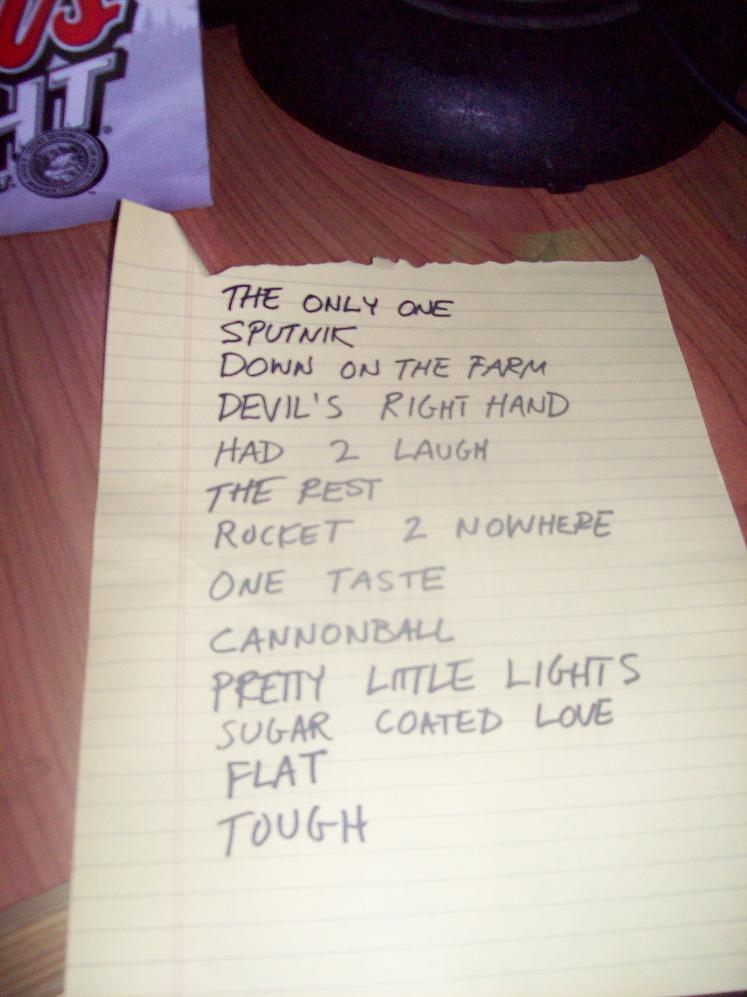 HT
THE ONLY ONE
SPUTNIK
DOWN ON THE FARM
DEVIL'S RIGHT HAND
HAD 2 LAUGH
THE REST
ROCKET 2 NOWHERE
ONE TASTE
CANNONBALL
PRETTY LITTLE LIGHTS
SUGAR COATED LOVE
FLAT
TOUGH